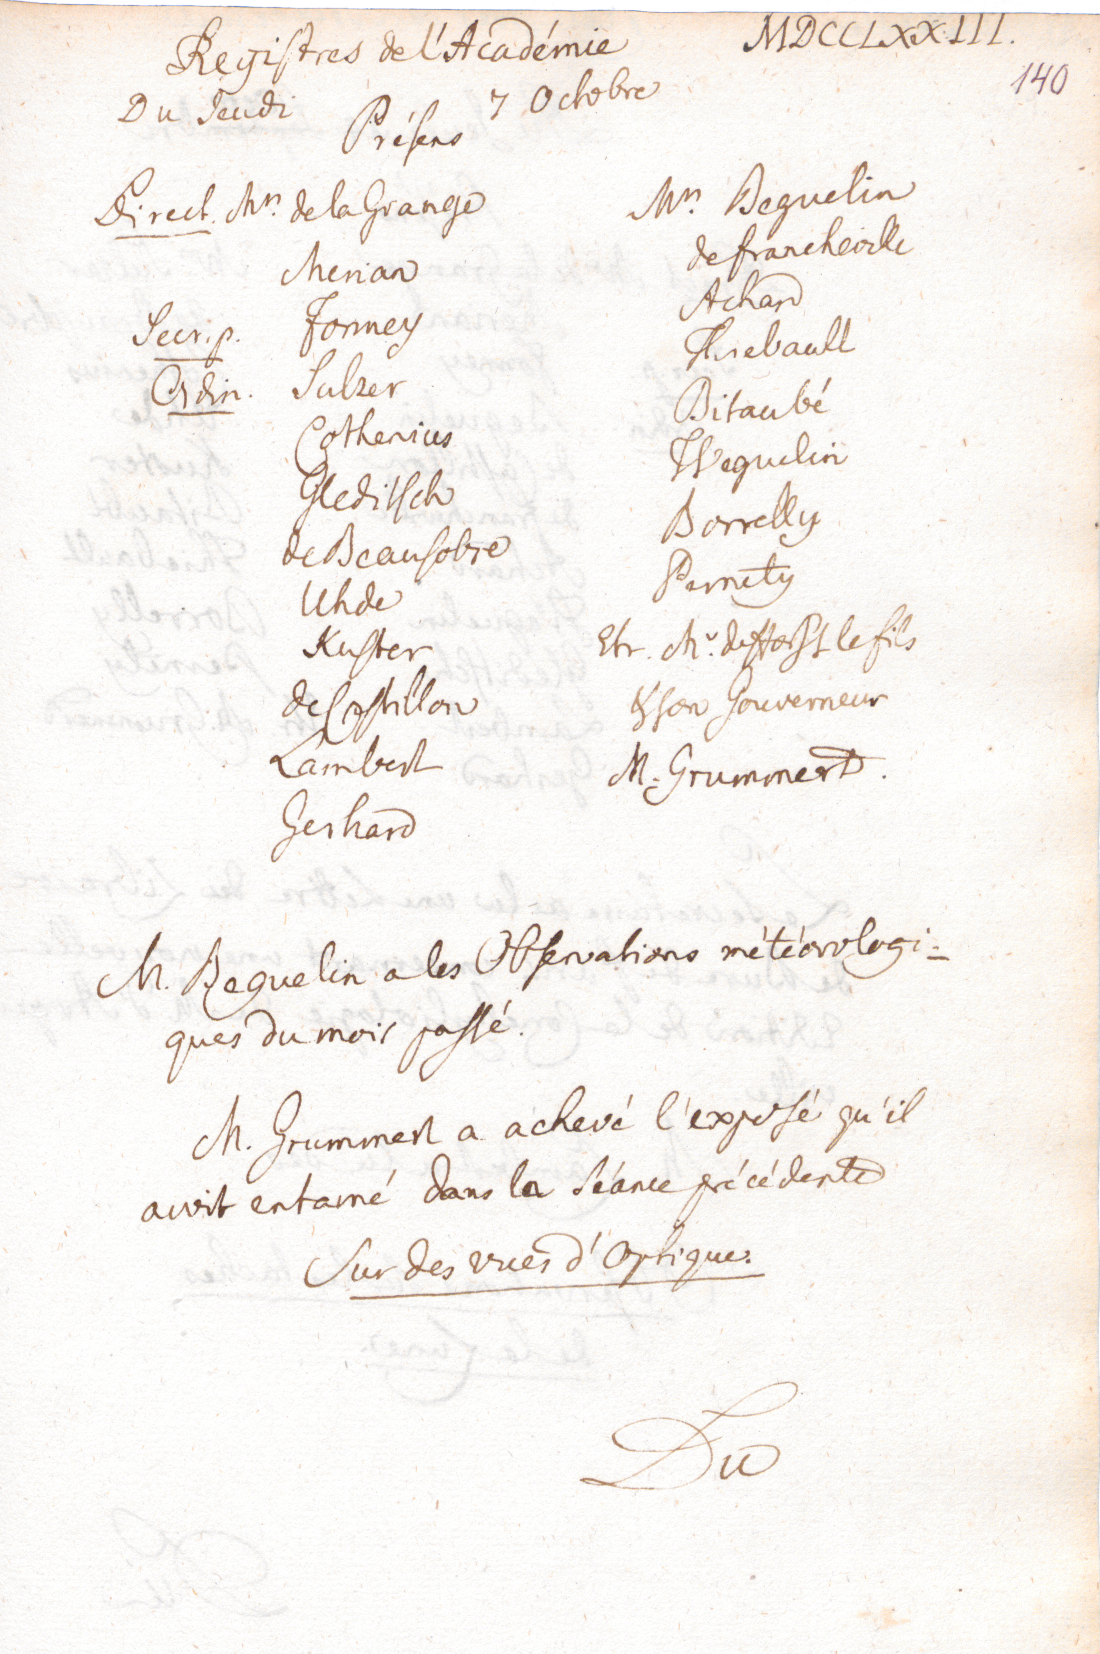 Registres de l'Académie MDCCLXXIII.
140
Du Jeudi 7 Octobre
Présens
Direct. Mrs. de la Grange
Merian
Secr. p. Formey
Ordin. Sulzer
Cothenius
Gleditsch
de Beausobre
Uhde
Kuster
de Castillon
Lambert
Gerhard
Mrs. Beguelin
de Francheville
Achard
Thiebault
Bitaubé
Weguelin
Borrelly
Pernety
Etr. Mr. le fils
& son Gouverneur
M. Grummert.
M. Beguelin a les Observations météorologi=
ques du mois passé.
M. Grummert a achevé l'exposé qu'il
avoit entamé dans la séance précédente
Sur des vues d'Optique.
Du